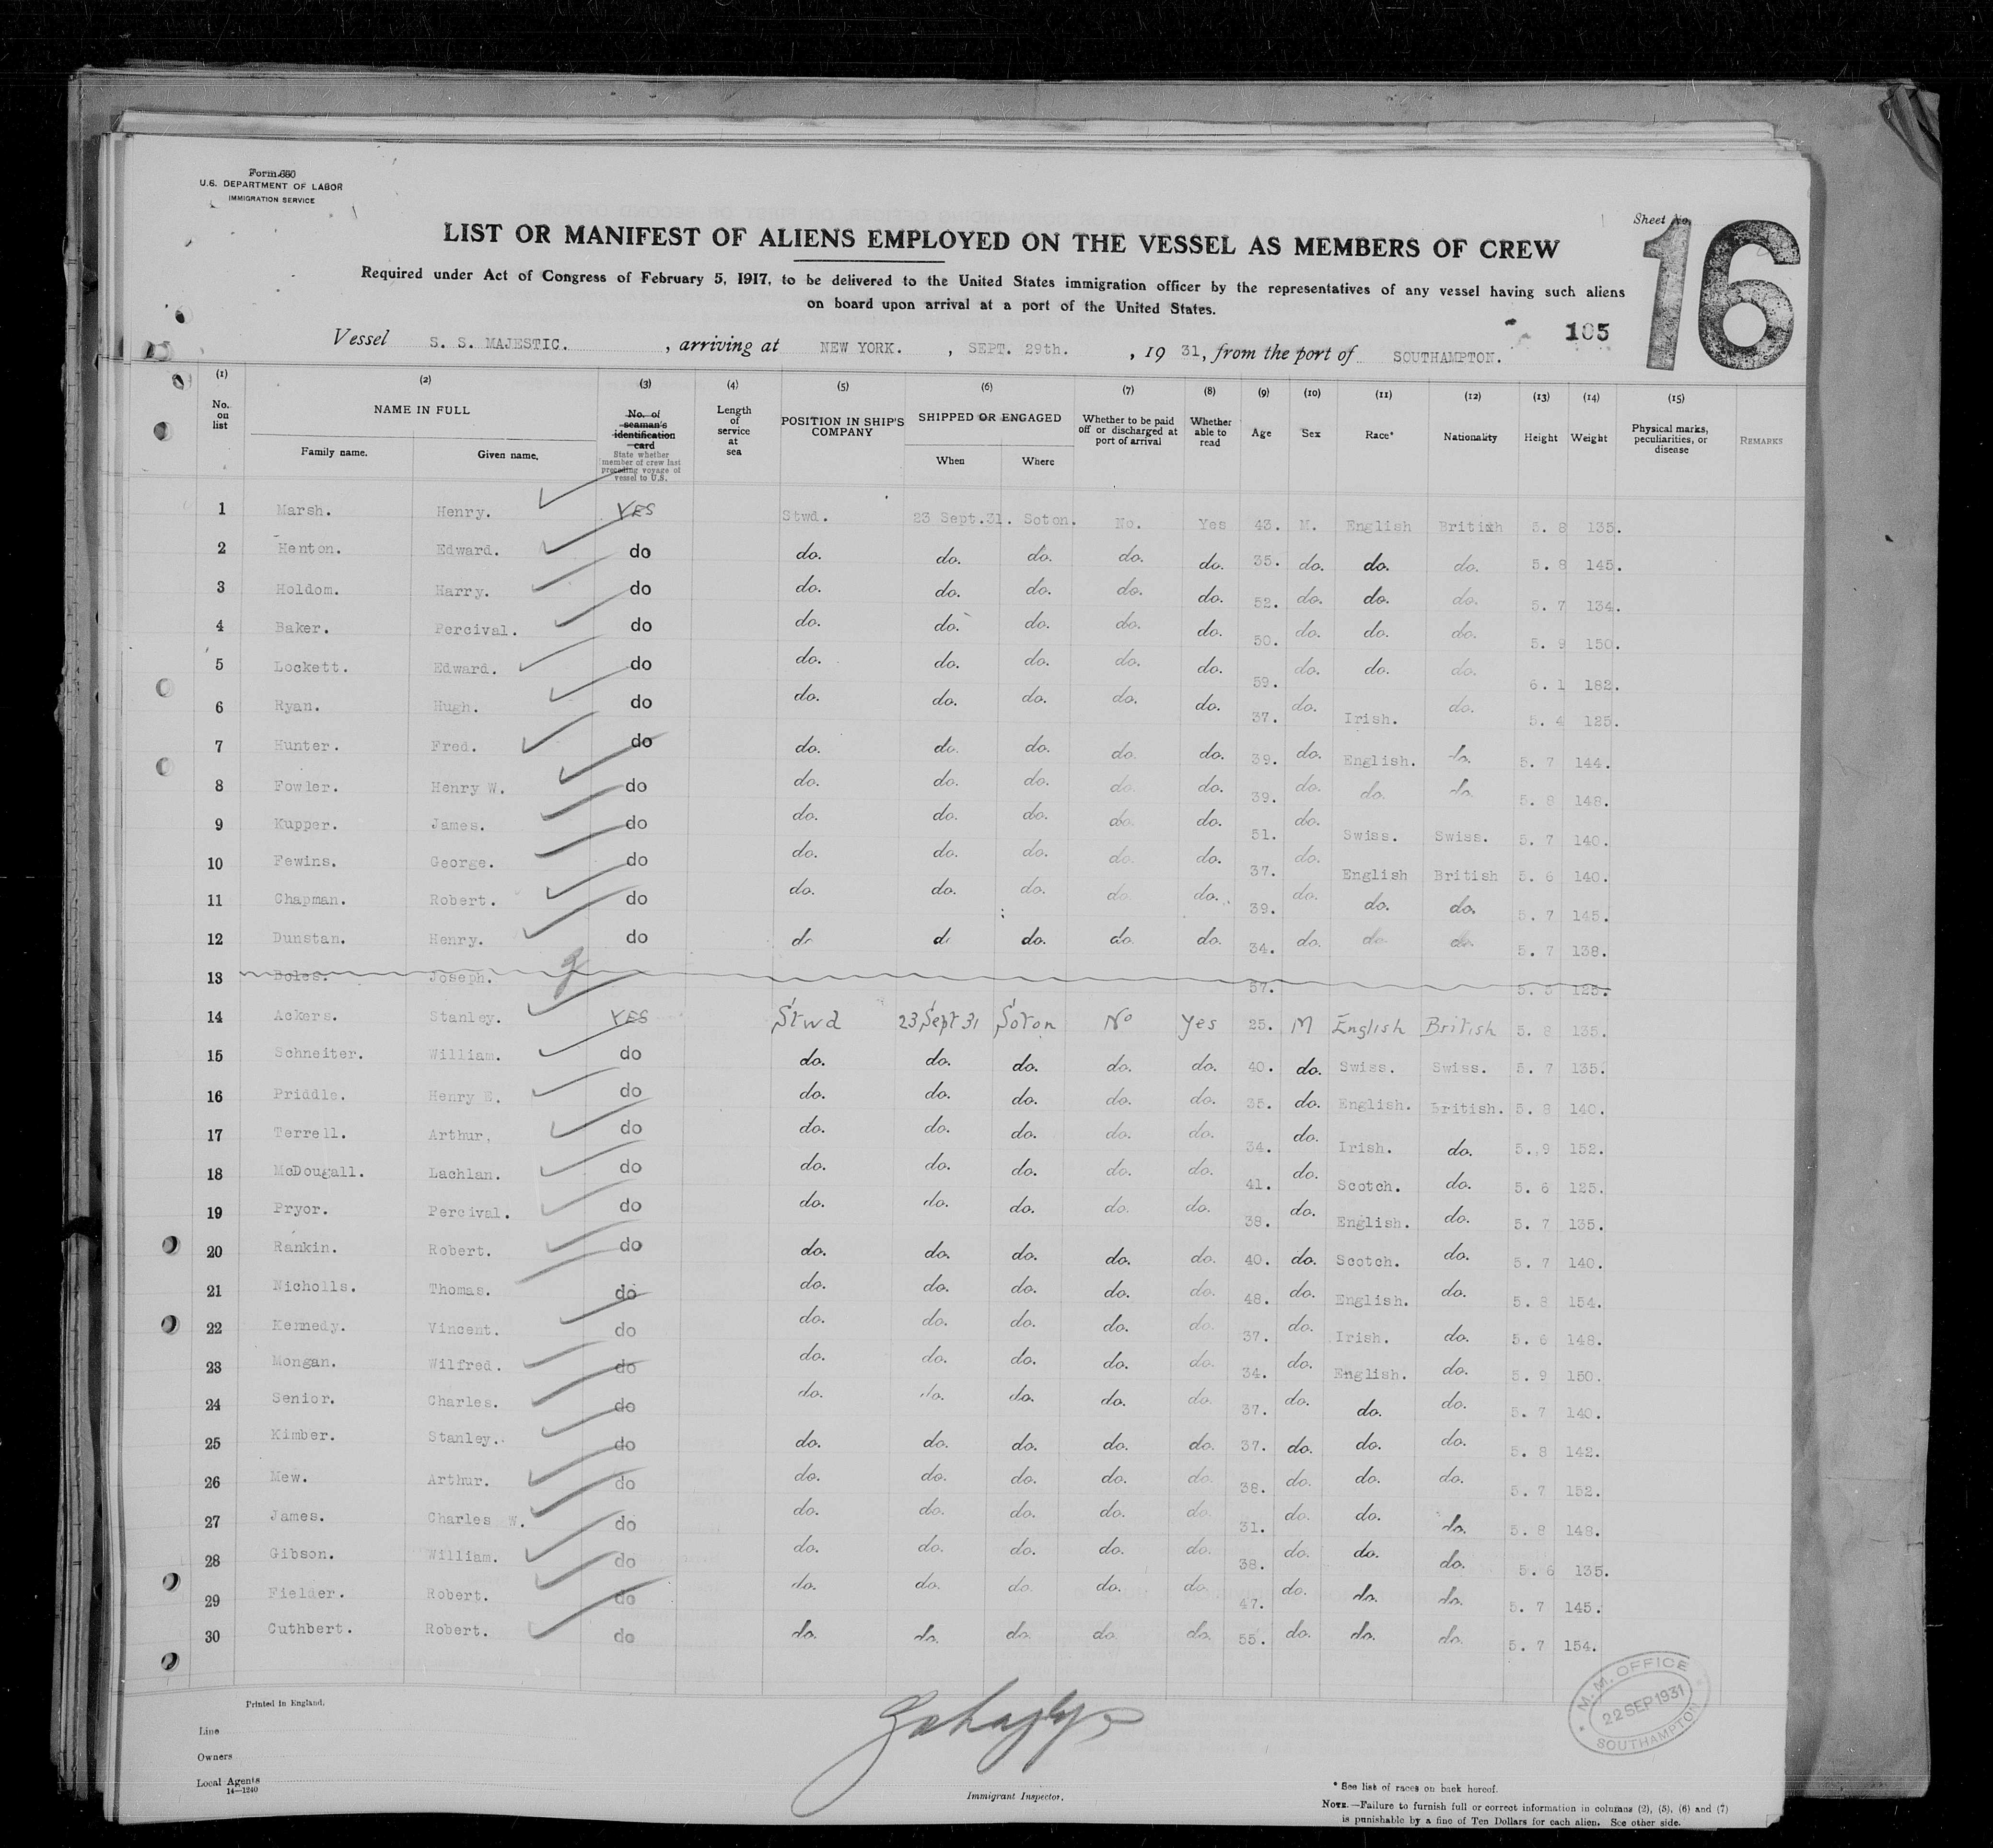 Form 680
U.S. DEPARTMENT OF LABOR
IMMIGRATION SERVICE
Sheet No.
16
LIST OR MANIFEST OF ALIENS EMPLOYED ON THE VESSEL AS MEMBERS OF CREW
Required under Act of Congress of February 5, 1917, to be delivered to the United States immigration officer by the representatives of any vessel having such aliens
on board upon arrival at a port of the United States.
105
Vessel S. S. MAJESTIC. , arriving at NEW YORK. , SEPT. 29th. , 19 31, from the port of SOUTHAMPTON.
(1) (2) (3) (4) (5) (6) (7) (8) (9) (10) (11) (12) (13) (14) (15)
No. on list NAME IN FULL Family name. Given name. No. of seaman's identification card State whether member of crew last preceding voyage of vessel to U.S. Length of service at sea POSITION IN SHIP'S COMPANY SHIPPED OR ENGAGED When Where Whether to be paid off or discharged at port of arrival Whether able to read Age Sex Race* Nationality Height Weight Physical marks, peculiarities, or disease REMARKS
1 Marsh. Henry. YES Stwd. 23 Sept.31. Soton. No. Yes 43. M. English British 5. 8 135.
2 Henton. Edward. do do. do. do. do. do. 35. do. do. do. 5. 8 145.
3 Holdom. Harry. do do. do. do. do. do. 52. do. do. do. 5. 7 134.
4 Baker. Percival. do do. do. do. do. do. 50. do. do. do. 5. 9 150.
5 Lockett. Edward. do do. do. do. do. do. 59. do. do. do. 6. 1 182.
6 Ryan. Hugh. do do. do. do. do. do. 37. do. Irish. do. 5. 4 125.
7 Hunter. Fred. do do. do. do. do. do. 39. do. English. do. 5. 7 144.
8 Fowler. Henry W. do do. do. do. do. do. 39. do. do. do. 5. 8 148.
9 Kupper. James. do do. do. do. do. do. 51. do. Swiss. Swiss. 5. 7 140.
10 Fewins. George. do do. do. do. do. do. 37. do. English British 5. 6 140.
11 Chapman. Robert. do do. do. do. do. do. 39. do. do. do. 5. 7 145.
12 Dunstan. Henry. do do do do. do. do. 34. do. do. do. 5. 7 138.
13 Boles. Joseph. 57. 5. 5 125.
14 Ackers. Stanley. YES Stwd 23 Sept 31 Soton No Yes 25. M English British 5. 8 135.
15 Schneiter. William. do do. do. do. do. do. 40. do. Swiss. Swiss. 5. 7 135.
16 Priddle. Henry E. do do. do. do. do. do. 35. do. English. British. 5. 8 140.
17 Terrell. Arthur. do do. do. do. do. do. 34. do. Irish. do. 5. 9 152.
18 McDougall. Lachlan. do do. do. do. do. do. 41. do. Scotch. do. 5. 6 125.
19 Pryor. Percival. do do. do. do. do. do. 38. do. English. do. 5. 7 135.
20 Rankin. Robert. do do. do. do. do. do. 40. do. Scotch. do. 5. 7 140.
21 Nicholls. Thomas. do do. do. do. do. do. 48. do. English. do. 5. 8 154.
22 Kennedy. Vincent. do do. do. do. do. do. 37. do. Irish. do. 5. 6 148.
23 Mongan. Wilfred. do do. do. do. do. do. 34. do. English. do. 5. 9 150.
24 Senior. Charles. do do. do. do. do. do. 37. do. do. do. 5. 7 140.
25 Kimber. Stanley. do do. do. do. do. do. 37. do. do. do. 5. 8 142.
26 Mew. Arthur. do do. do. do. do. do. 38. do. do. do. 5. 7 152.
27 James. Charles W. do do. do. do. do. do. 31. do. do. do. 5. 8 148.
28 Gibson. William. do do. do. do. do. do. 38. do. do. do. 5. 6 135.
29 Fielder. Robert. do do. do. do. do. do. 47. do. do. do. 5. 7 145.
30 Cuthbert. Robert. do do. do. do. do. do. 55. do. do. do. 5. 7 154.
M. M. OFFICE
22 SEP 1931
SOUTHAMPTON
Printed in England.
Line
Owners
Local Agents
14—1240
Immigrant Inspector.
* See list of races on back hereof.
NOTE.—Failure to furnish full or correct information in columns (2), (5), (6) and (7)
is punishable by a fine of Ten Dollars for each alien. See other side.